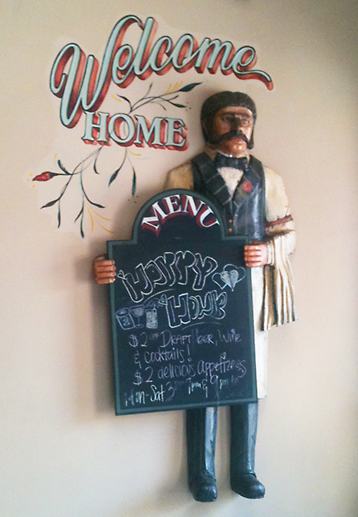 Welcome
HOME
MENU
Happy
Hour
$2 Draft Beer, Wine
& cocktails!
$2 delicious Appetizers
Mon-Sat 3pm 7pm & 9pm